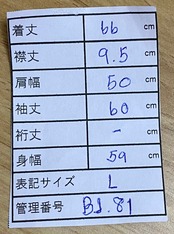 着丈 66 cm
襟丈 9.5 cm
肩幅 50 cm
袖丈 60 cm
裄丈 - cm
身幅 59 cm
表記サイズ L
管理番号 BJ.81